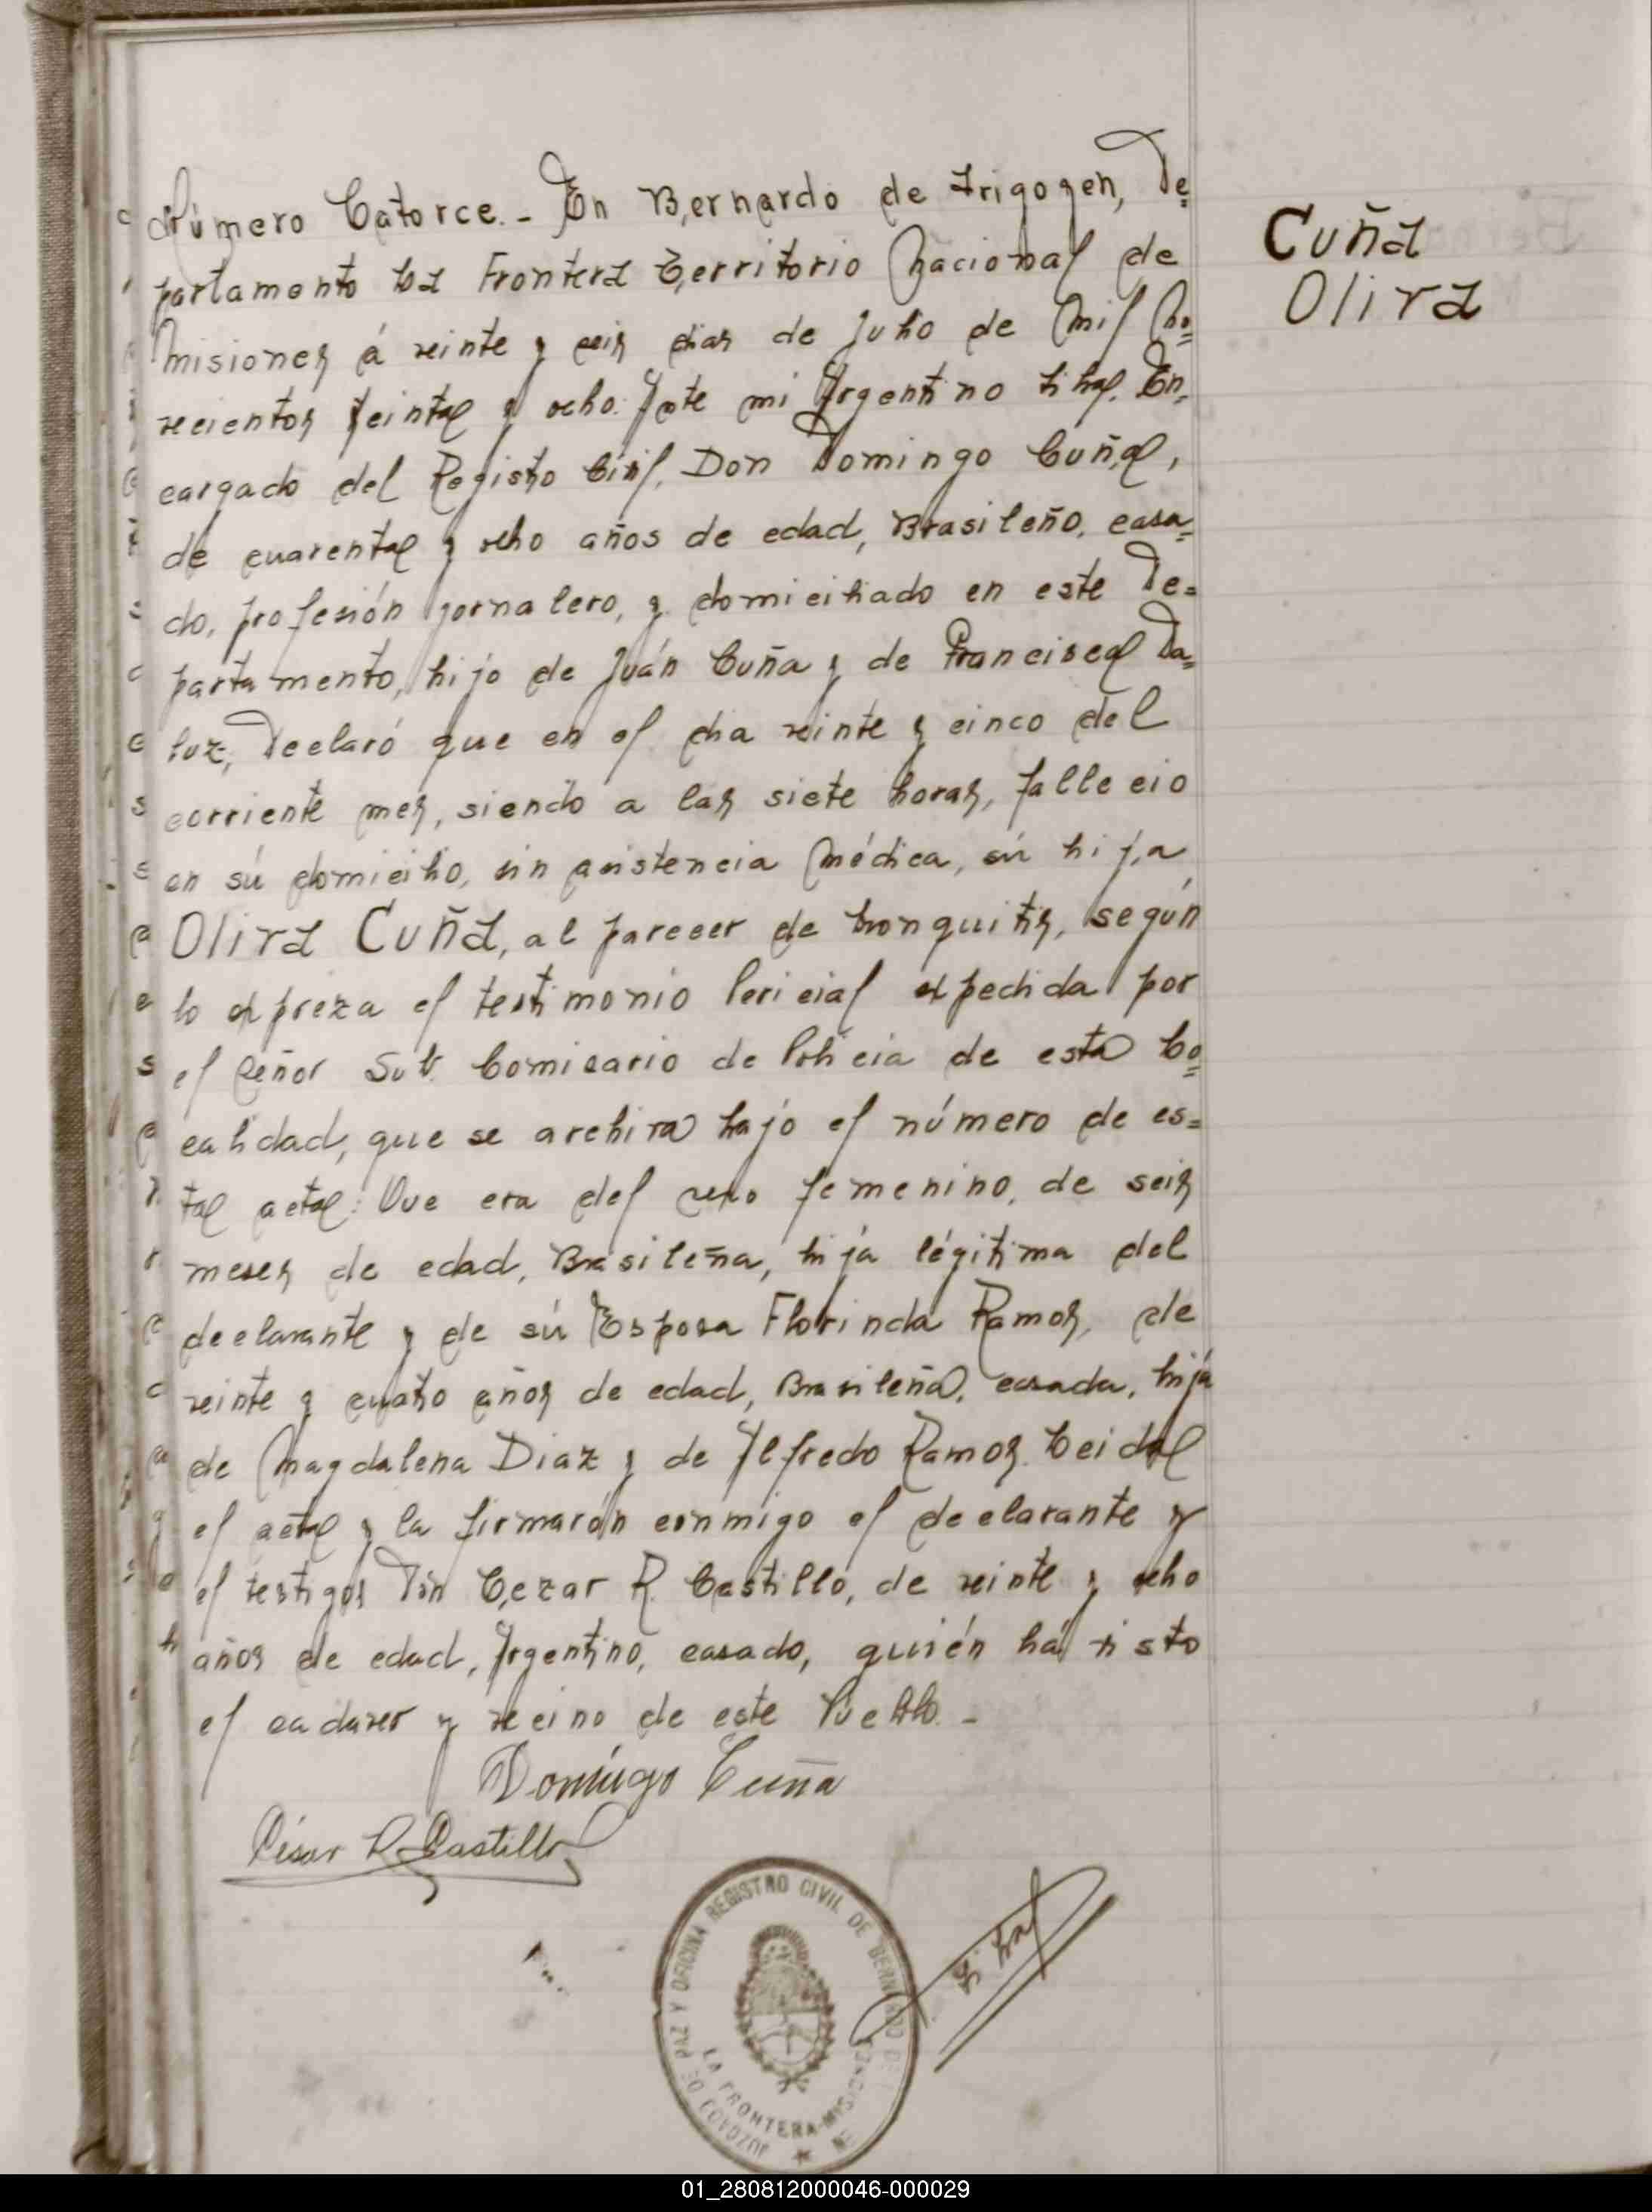 Número Catorce.- En Bernardo de Irigoyen, De=
partamento La Frontera Territorio Nacional de
Misiones á veinte y seis dias de Julio de Mil No=
vecientos treinta y ocho. Ante mi Argentino Vihal. En,
cargado del Registro Civil, Don Domingo Cuña,
de cuarenta y ocho años de edad, Brasileño, casa=
do, profesión jornalero, y domiciliado en este De=
partamento, hijo de Juán Cuña y de Francisca Da=
luz, Declaró que en el dia veinte y cinco del
corriente mes, siendo a las siete horas, fallecio
en sú domicilio, sin asistencia Médica, sú hija
Oliva Cuña, al parecer de bronquitis, según
lo expreza el testimonio Pericial expedida por
el Señor Sub. Comisario de Policia de esta Lo=
calidad, que se archiva bajo el número de es=
ta acta: Que era del sexo femenino, de seis
meses de edad, Brasileña, hija légitima del
declarante y de sú Esposa Florinda Ramos, de
veinte y cuatro años de edad, Brasileña, casada, hija
de Magdalena Diaz y de Alfredo Ramos. Leida
el acta y la firmarón conmigo el declarante y
el testigos Don Cezar R. Castillo, de veinte y ocho
años de edad, Argentino, casado, quién há visto
el cadaver y vecino de este Pueblo.-
Domingo Cuña
César R. Castillo
Cuña
Oliva
JUZGADO DE PAZ Y OFICINA REGISTRO CIVIL DE BERNARDO DE
LA FRONTERA-MISIONES
01_280812000046-000029